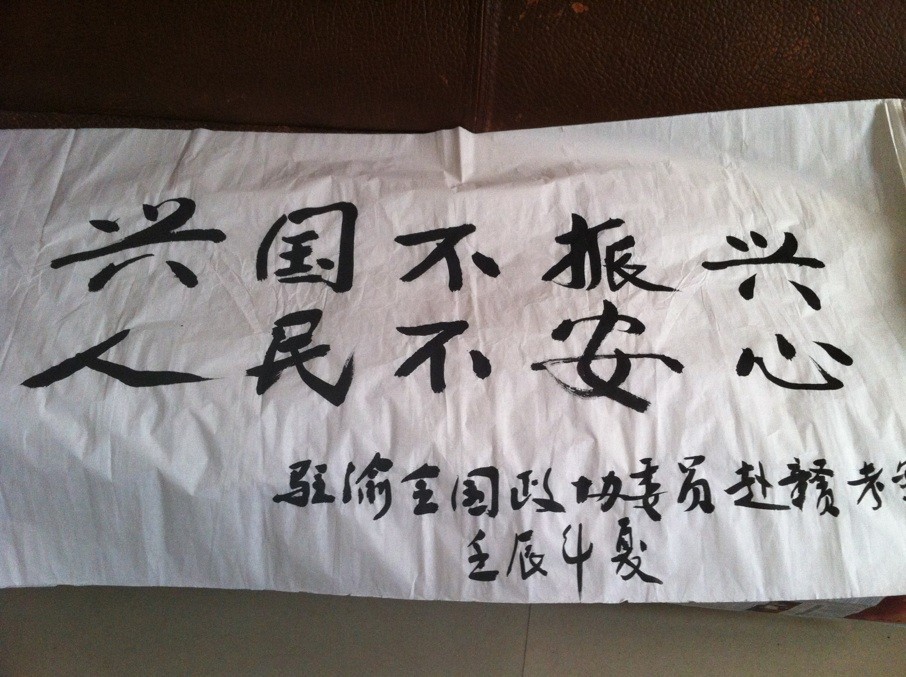 兴国不振兴
人民不安心
驻渝全国政协委员赴赣考察
壬辰斗夏